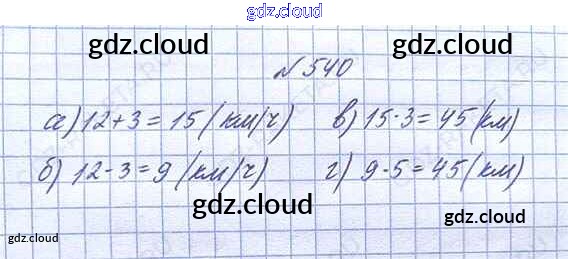 gdz.cloud
gdz.cloud gdz.cloud
№ 540
а) 12+3=15 (км/ч) в) 15·3=45 (км)
б) 12-3=9 (км/ч) г) 9·5=45 (км)
gdz.cloud gdz.cloud
gdz.cloud